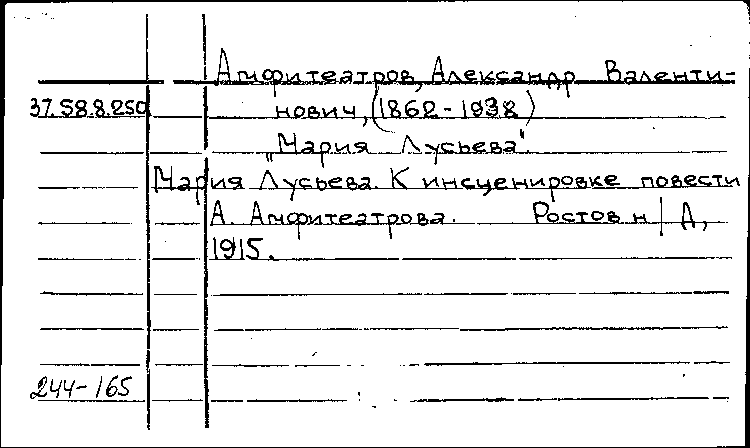 Амфитеатров, Александр Валенти-
37.58.8.250 нович, (1862-1938)
„Мария Лусьева".
Мария Лусьева. К инсценировке повести
А. Амфитеатрова. Ростов н/Д,
1915.
244-165